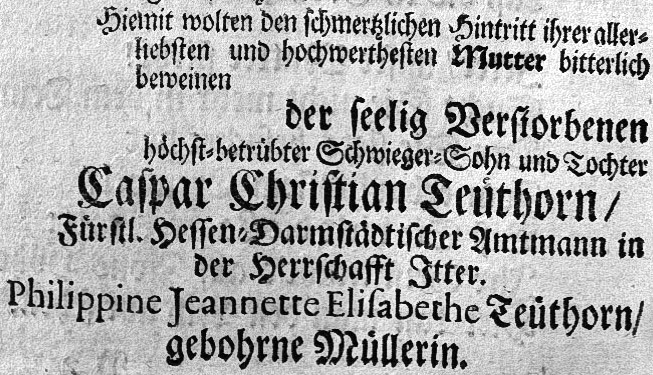 Hiemit wolten den schmertzlichen Hintritt ihrer aller-
liebsten und hochwerthesten Mutter bitterlich
beweinen
der seelig Verstorbenen
höchst-betrübter Schwieger-Sohn und Tochter
Caspar Christian Teüthorn/
Fürstl. Hessen-Darmstädtischer Amtmann in
der Herrschafft Itter.
Philippine Jeannette Elisabethe Teüthorn/
gebohrne Müllerin.